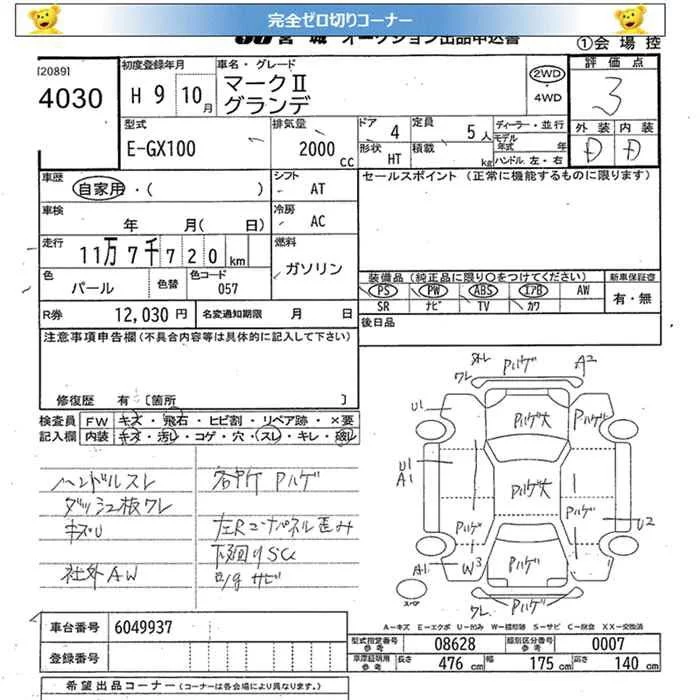 完全ゼロ切りコーナー
JU 宮 城 オークション出品申込書
①会 場 控
[2089]
4030
初度登録年月
H 9 10月
車名・グレード
マークⅡ
グランデ
2WD
4WD
評 価 点
3
外 装 内 装
D D
型式
E-GX100
排気量
2000 CC
ドア 4
定員 5人
形状 HT
積載 kg
ディーラー・並行
モデル年式 年
ハンドル 左・右
車歴
自家用・( )
シフト AT
セールスポイント (正常に機能するものに限ります)
車検
年 月( 日)
冷房 AC
走行
11万7千720km
燃料
ガソリン
色
パール
色替
色コード
057
装備品(純正品に限り○をつけてください)
新車保証書
PS PW ABS エアB AW
SR ナビ TV カワ
有・無
R券 12,030 円
名変通知期限 月 日
後日品
注意事項申告欄(不具合内容等は具体的に記入して下さい)
修復歴 有 [箇所 ]
検査員記入欄
FW キズ・飛石・ヒビ割・リペア跡・×要
内装 キズ・汚レ・コゲ・穴・スレ・キレ・破レ
ハンドルスレ
ダッシュ板ワレ
キズU
社外AW
各所Pハゲ
左Rコーナパネル歪み
下廻りSC
サビ
外レ
ワレ
Pハゲ
A2
U1
Pハゲ大
Pハゲ
U1
A1
Pハゲ大
Pハゲ
U2
Pハゲ
A1
W3
Pハゲ
スペア
ワレ
Pハゲ
A-キズ E-エクボ U-凹み W-補修跡 S-サビ C-腐食 XX-交換済
車台番号 6049937
登録番号
型式指定番号 参考 08628
類別区分番号 参考 0007
車庫証明用 参考 長さ 476 cm 幅 175 cm 高さ 140 cm
希望出品コーナー (コーナーは各会場により異なります。)